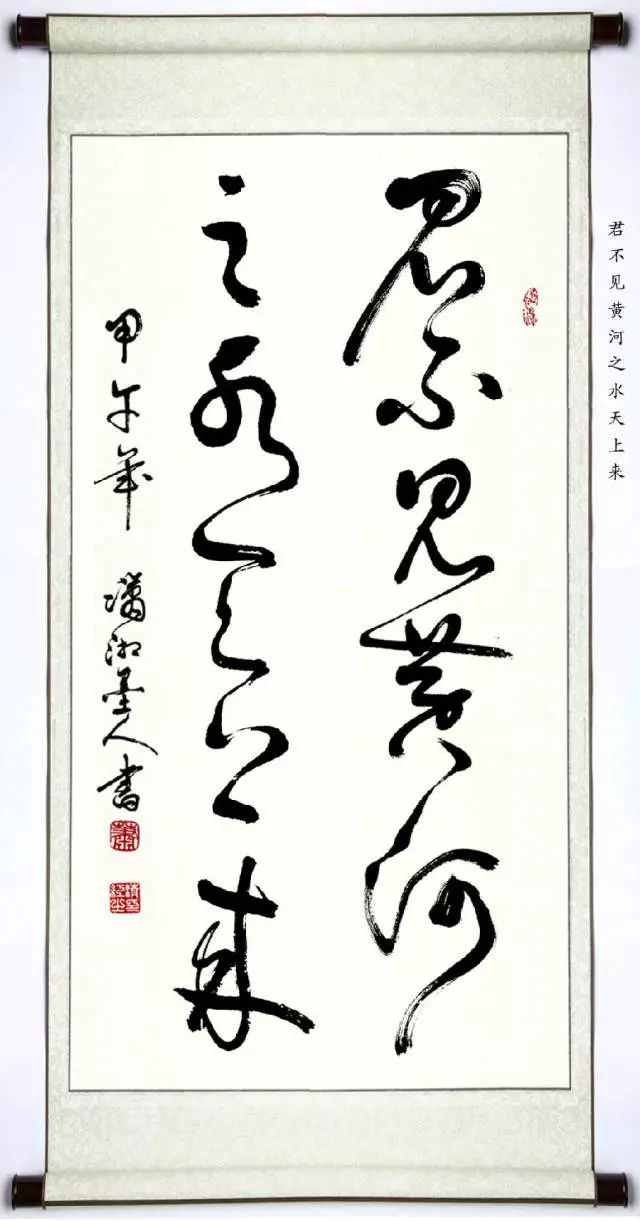 君不见黄河之水天上来
君不见黄河
之水天上来
甲午年 瀟湘墨人書